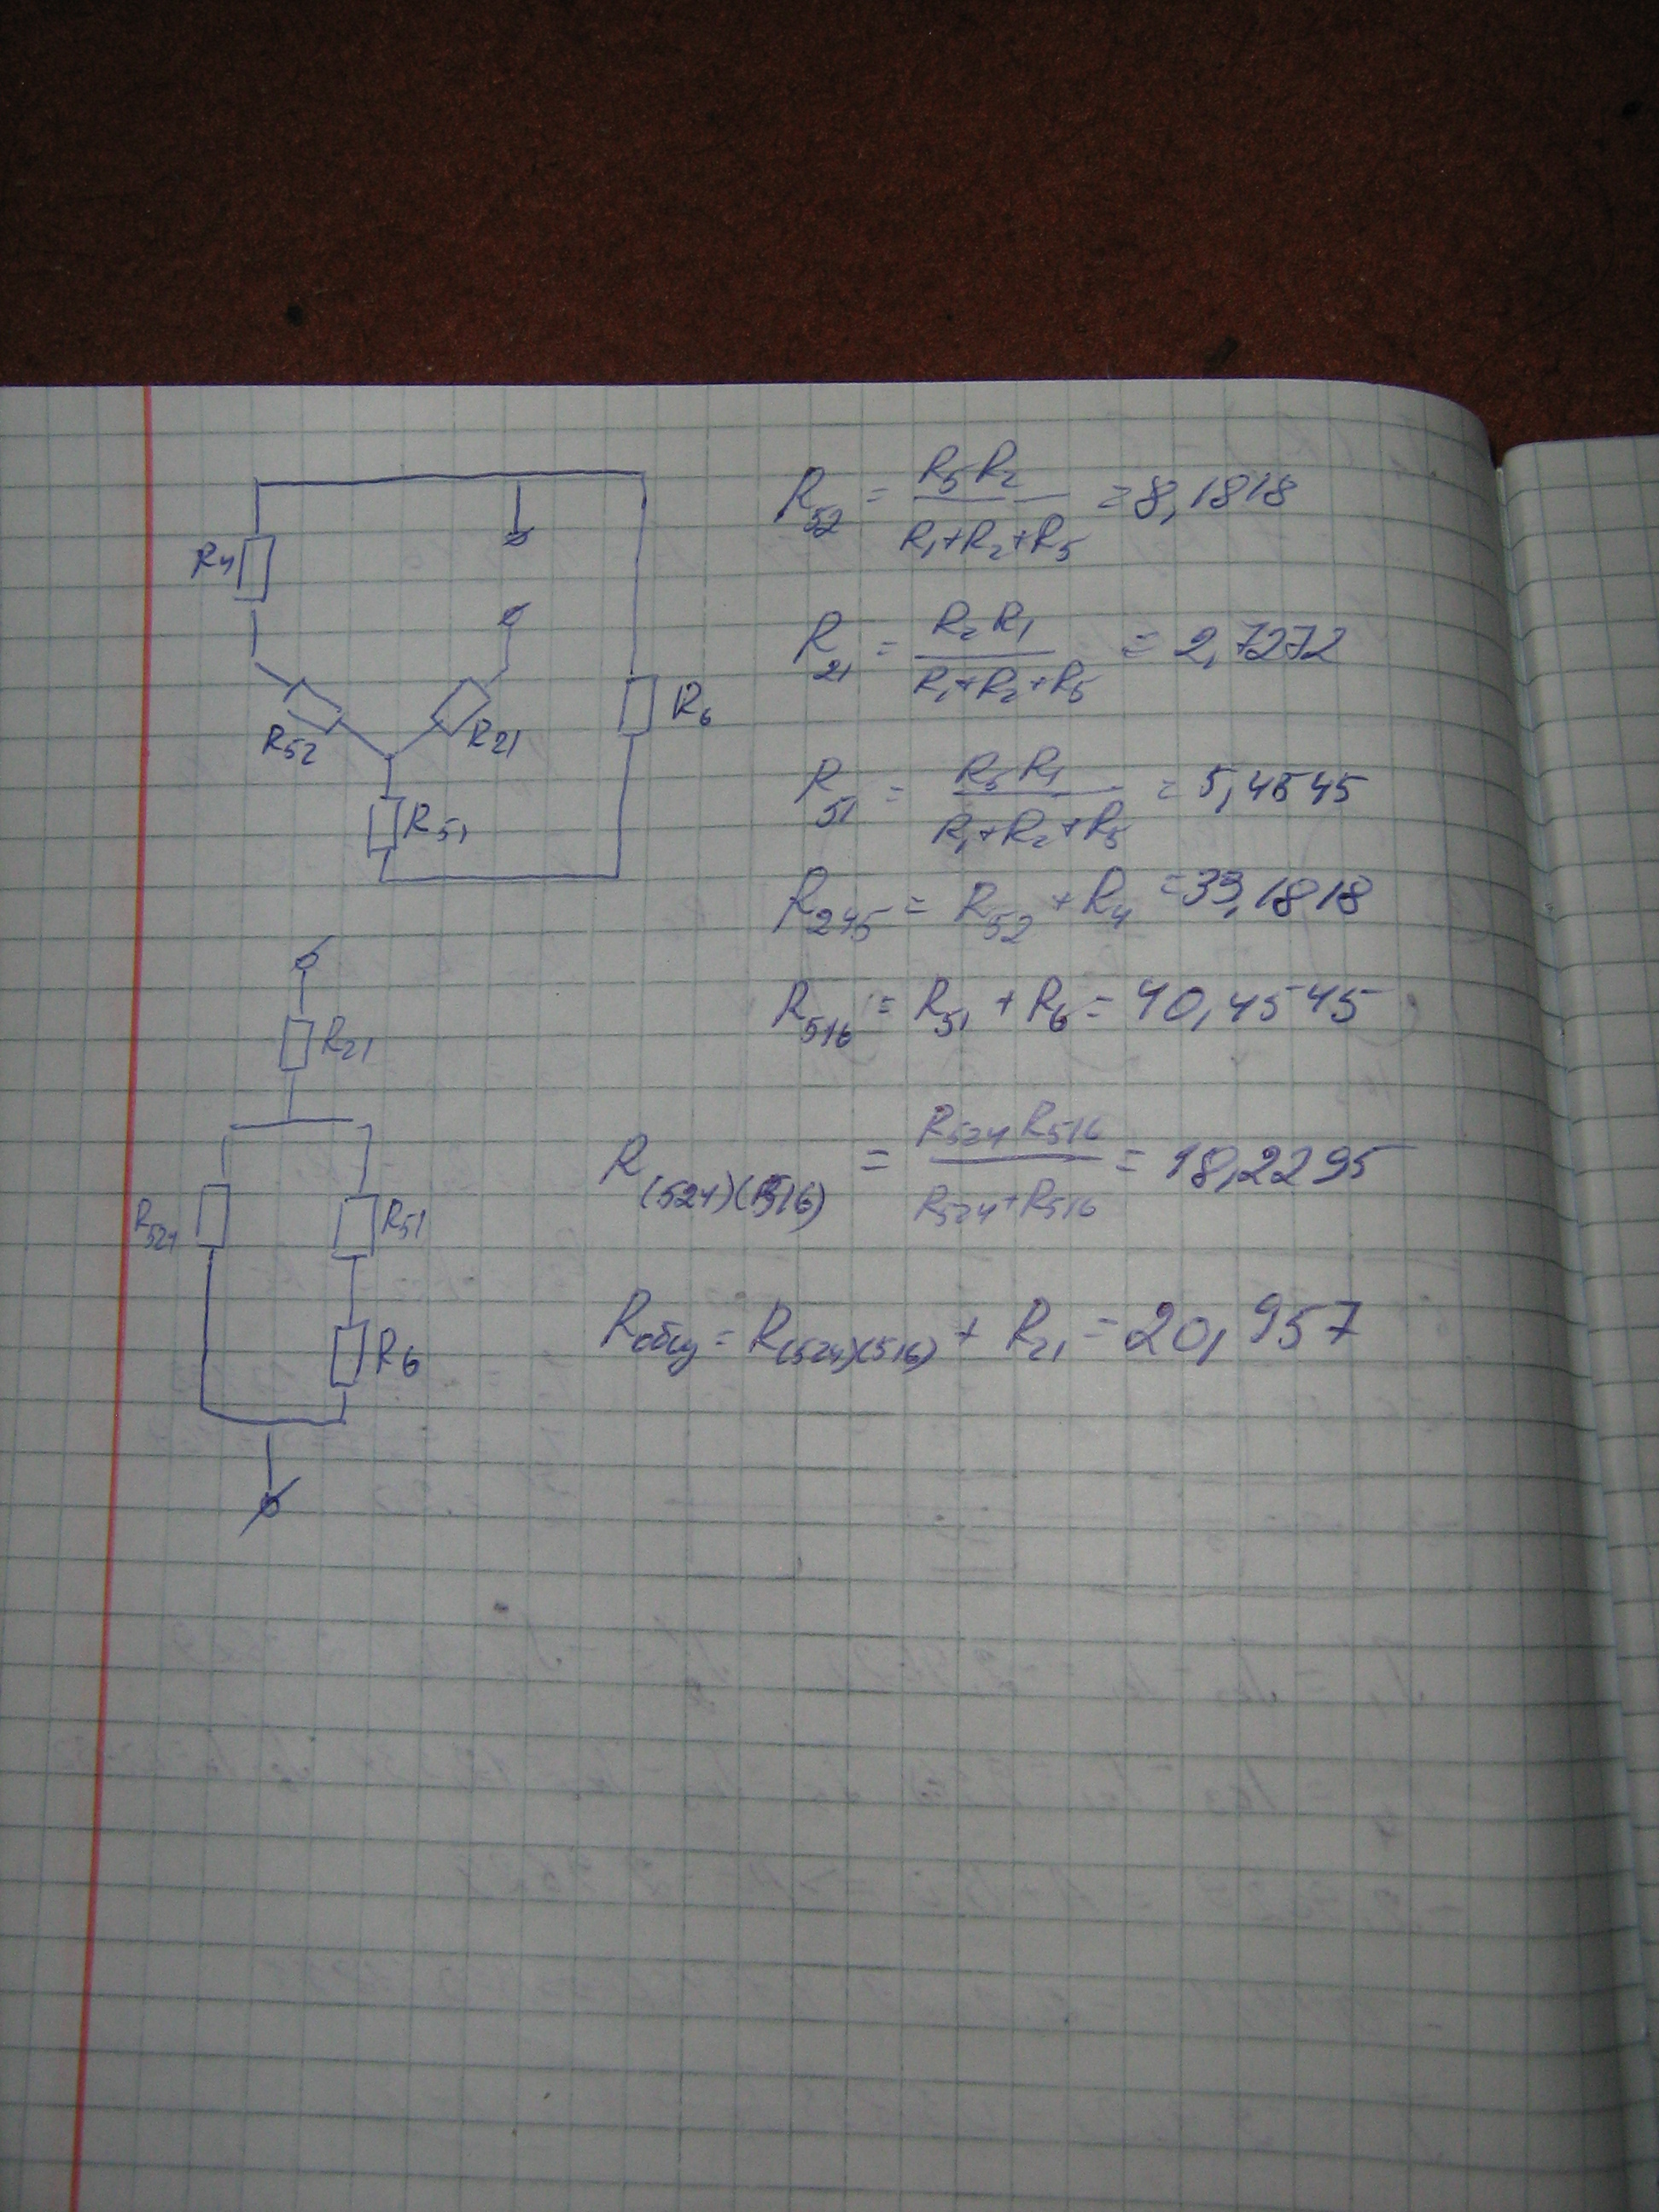 R4
R52
R21
R51
R6
R21
R524
R51
R6
R52 = R5 R2 / R1+R2+R5 = 8,1818
R21 = R2 R1 / R1+R2+R5 = 2,7272
R51 = R5 R1 / R1+R2+R5 = 5,4545
R245 = R52 + R4 = 33,1818
R516 = R51 + R6 = 40,4545
R(524)(516) = R524 R516 / R524+R516 = 18,2295
Rобщ = R(524)(516) + R21 = 20,957